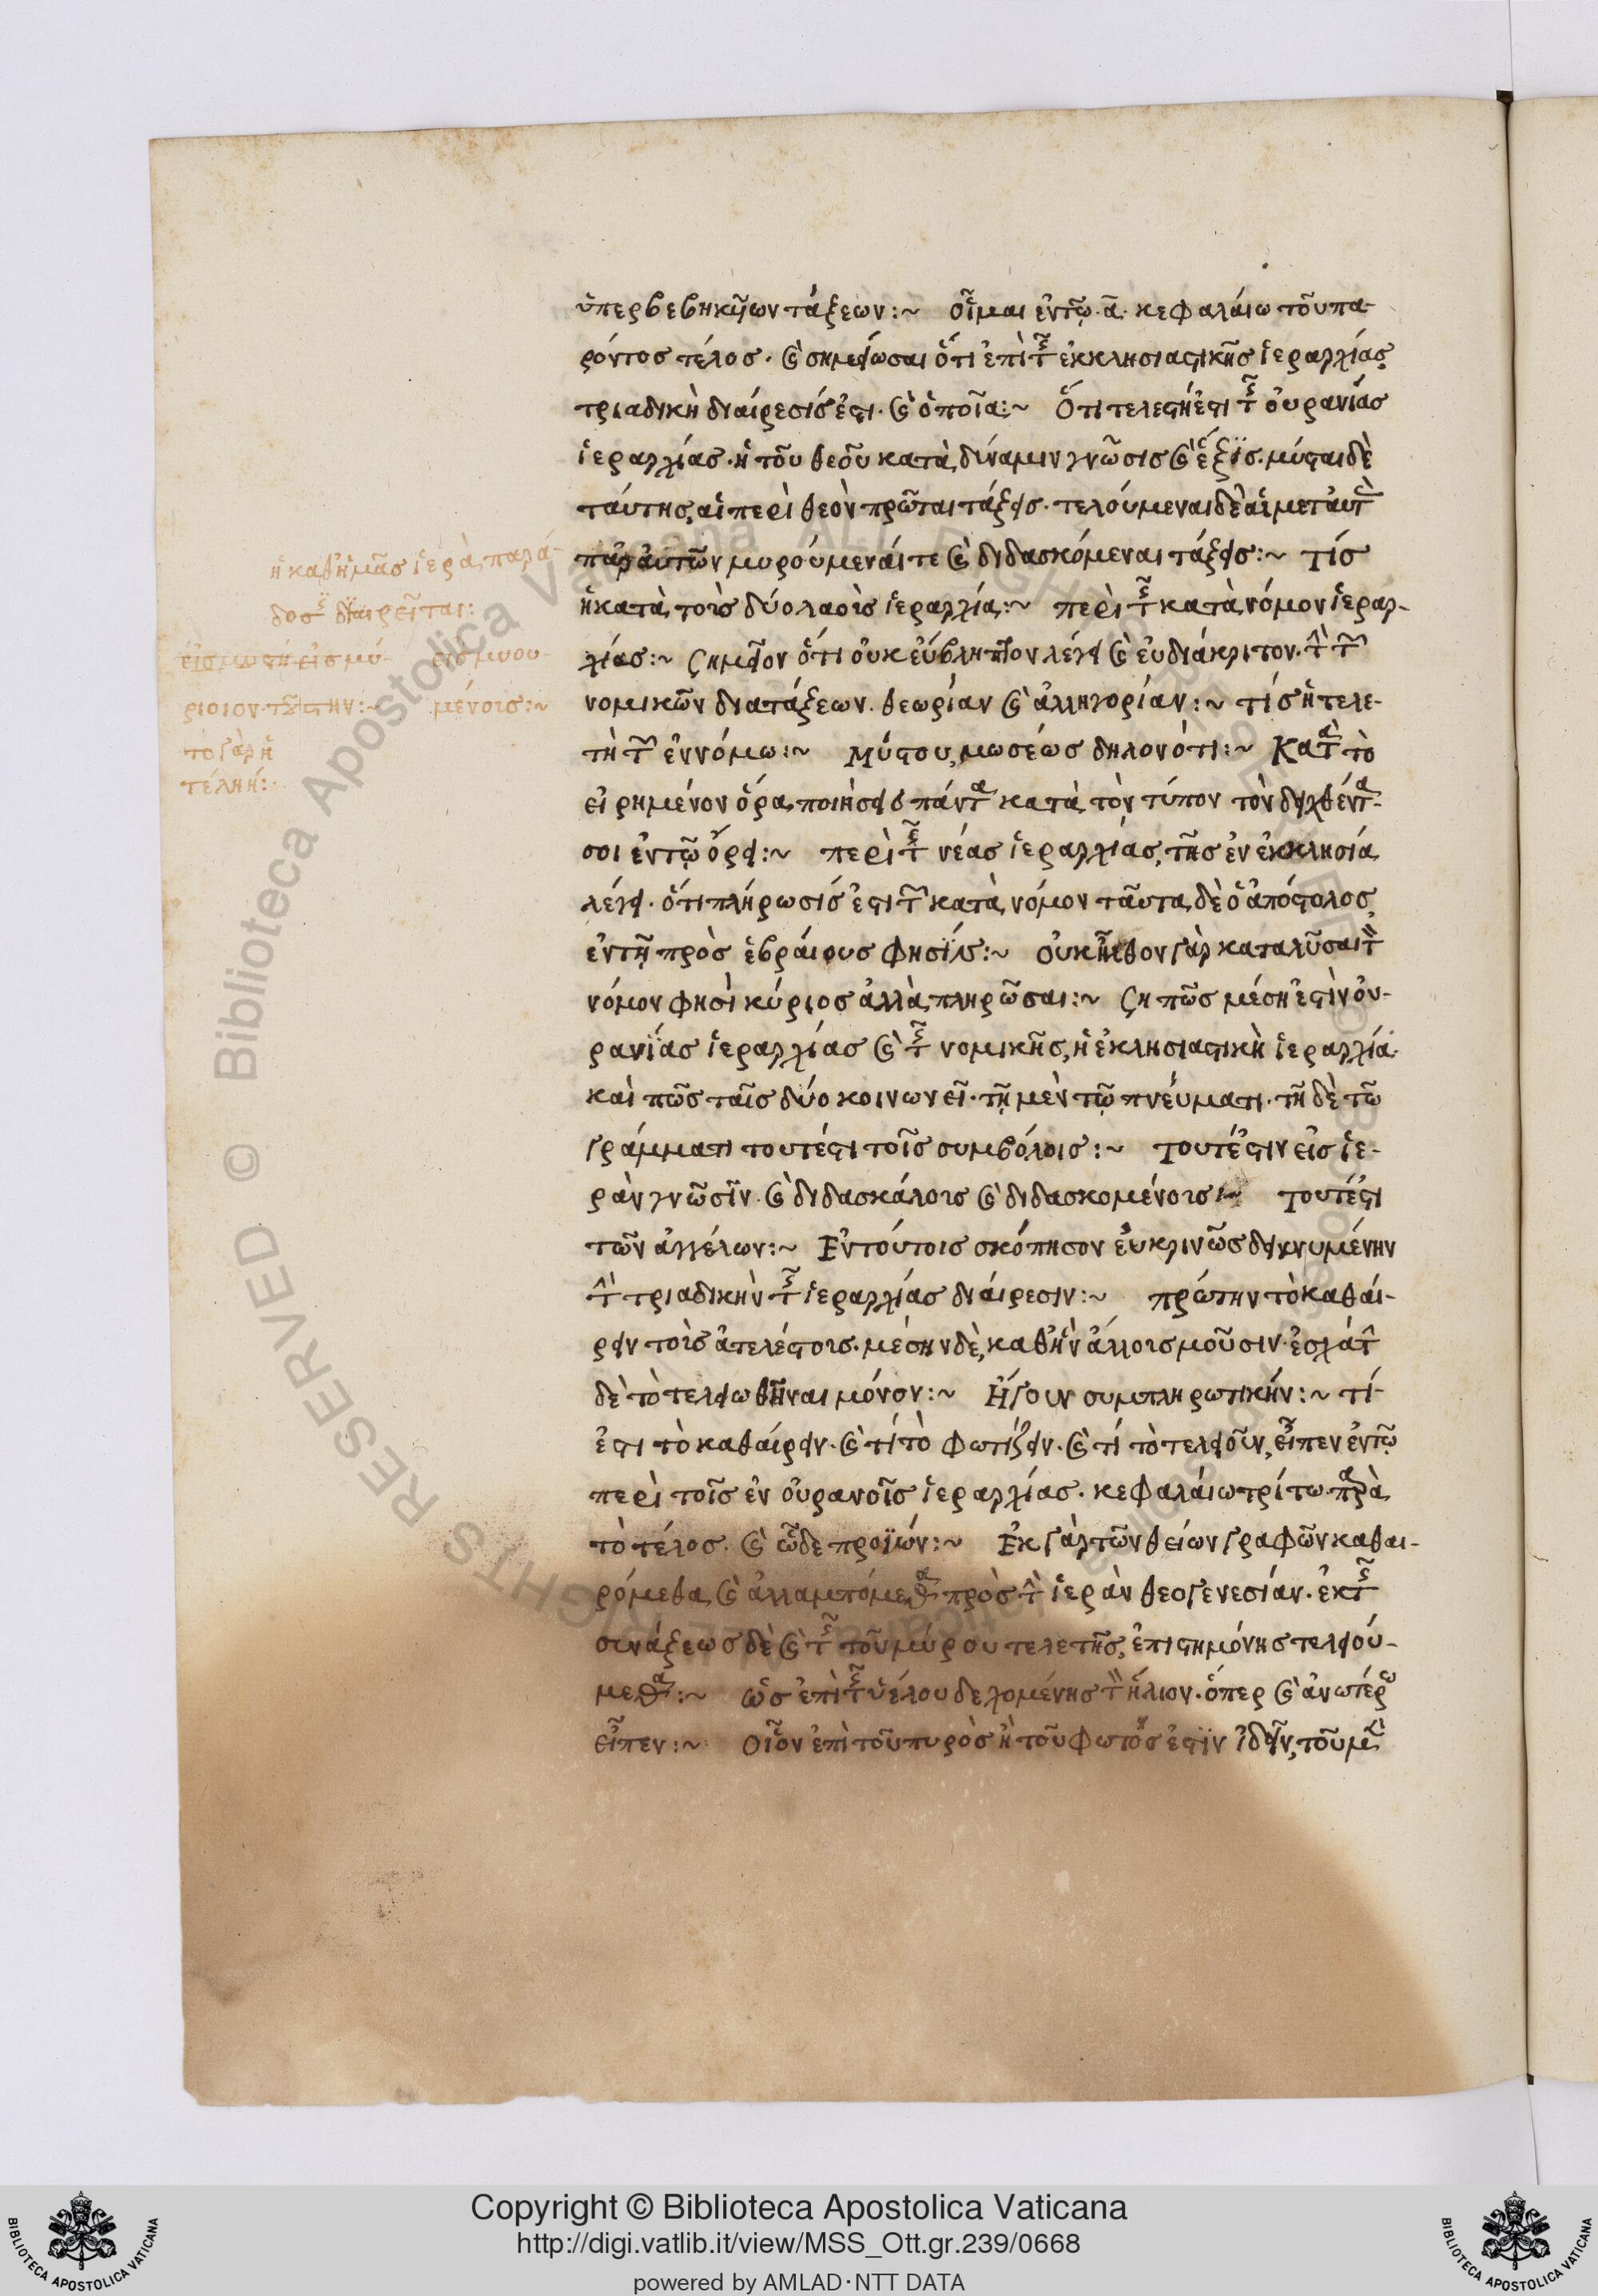 ὑπερβεβηκυῶν τάξεων:~ οἶμαι ἐν τῶ. α. κεφαλαίω τοῦ πα-
ρόντος τέλος. καὶ σημείωσαι ὅτι ἐπὶ τῆς ἐκκλησιαστικῆς ἱεραρχίας
τριαδικὴ διαίρεσίς ἐστι. καὶ ὁποῖα:~ Ὅτι τελετή ἐστι τῆς οὐρανίας
ἱεραρχίας. ἡ τοῦ θεοῦ κατὰ δύναμιν γνῶσις καὶ ἕξις. μύσται δὲ
ταύτης, αἱ περὶ θεὸν πρῶται τάξεις. τελούμεναι δὲ αἱ μετ αὐτὰς
παρ αὐτῶν μυούμεναί τε καὶ διδασκόμεναι τάξεις:~ Τίς
ἡ κατὰ τοὺς δύο λαοὺς ἱεραρχία:~ περὶ τῆς κατὰ νόμον ἱεραρ-
χίας:~ Σημεῖον ὅτι οὐκ εὔβληπτον λέγει καὶ εὐδιάκριτον. τὴν τῶν
νομικῶν διατάξεων. θεωρίαν καὶ ἀλληγορίαν:~ τίς ἡ τελε-
τὴ τῶν ἐννόμω:~ Μύστου, μωσέως δηλονότι:~ Κατὰ τὸ
εἰρημένον ὅρα, ποιήσεις πάντα κατὰ τὸν τύπον τὸν δειχθέντα-
σοι ἐν τῶ ὄρει:~ περὶ τῆς νέας ἱεραρχίας, τῆς ἐν ἐκκλησία
λέγει. ὅτι πλήρωσίς ἐστι τῶν κατὰ νόμον ταῦτα δὲ ὁ ἀπόστολος
ἐν τῆ πρὸς ἑβραίους φησίν:~ οὐκ ἦλθον γὰρ καταλῦσαι τὸν
νόμον φησὶ κύριος ἀλλὰ πληρῶσαι:~ Ση πῶς μέση ἐστὶν οὐ-
ρανίας ἱεραρχίας καὶ τῆς νομικῆς, ἡ ἐκλησιαστικὴ ἱεραρχία.
καὶ πῶς ταῖς δύο κοινωνεῖ. τῆ μὲν τῶ πνεύματι. τῆ δὲ τῶ
γράμματι τουτέστι τοῖς συμβόλοις:~ Τουτέστιν εἰς ἱε-
ρὰν γνῶσιν. καὶ διδασκάλοις καὶ διδασκομένοις:~ τουτέστι
τῶν ἀγγέλων:~ Ἐν τούτοις σκόπησον εὐκρινῶς δεικνυμένην
τὴν τριαδικὴν τῆς ἱεραρχίας διαίρεσιν:~ πρώτην τὸ καθαί-
ρειν τοὺς ἀτελέστους. μέσην δὲ, καθ ἣν ἄλλοις μοῦσιν. ἐσχάτην
δὲ τὸ τελειωθῆναι μόνον:~ Ἤγουν συμπληρωτικήν:~ τί-
ἐστι τὸ καθαίρειν. καὶ τί τὸ φωτίζειν. καὶ τί τὸ τελειοῦν, εἶπεν ἐν τῶ
περὶ τοῖς ἐν οὐρανοῖς ἱεραρχίας. κεφαλαίω τρίτω. παρὰ
τὸ τέλος. καὶ ὧδε προϊών:~ Ἐκ γὰρ τῶν θείων γραφῶν καθαι-
ρόμεθα, καὶ ἀλλαμπόμεθα πρὸς τὴν ἱερὰν θεογενεσίαν. ἐκ τῆς
συνάξεως δὲ καὶ τῆς τοῦ μύρου τελετῆς, ἐπιστημόνης τελειού-
μεθα:~ ὡς ἐπὶ τῆς ὑέλου δεχομένης τὸν ἥλιον. ὅπερ καὶ ἀνωτέρω
εἶπεν:~ Οἷον ἐπὶ τοῦ πυρὸς ἢ τοῦ φωτός ἐστιν ἰδεῖν, τοῦ μὲν
ἡ καθ ἡμᾶς ἱερὰ παρά-
δοσις διαιρεῖται:
εἰς μύ-
εἰς μυου-
μένοις:~
Copyright © Biblioteca Apostolica Vaticana
http://digi.vatlib.it/view/MSS_Ott.gr.239/0668
powered by AMLAD·NTT DATA
BIBLIOTECA APOSTOLICA VATICANA
BIBLIOTECA APOSTOLICA VATICANA